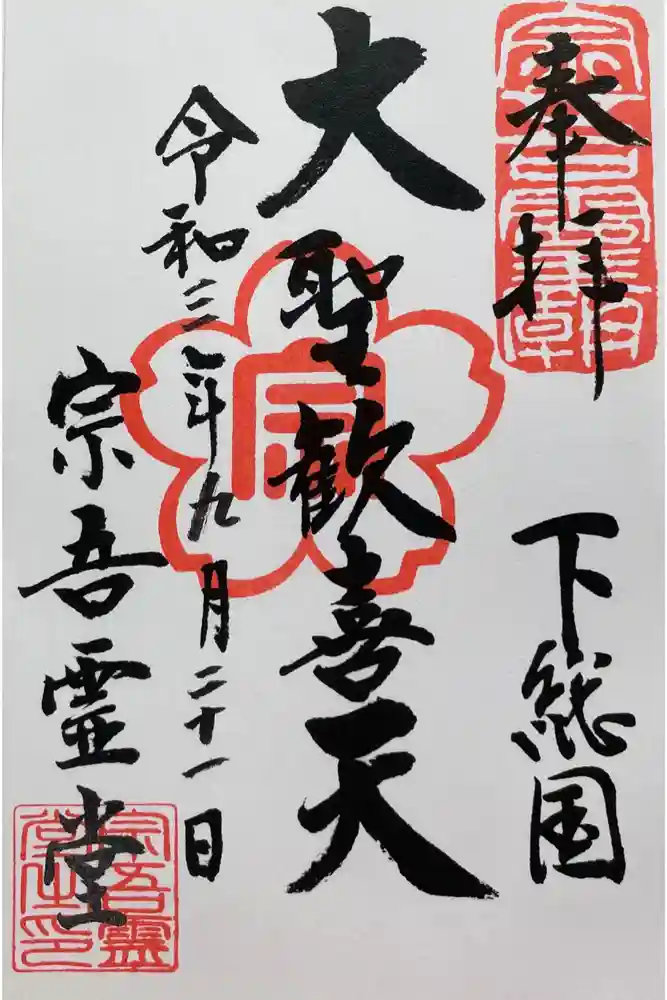 奉拝
下総国
大聖歓喜天
令和三年九月二十一日
宗吾霊堂
宗吾霊
堂之印